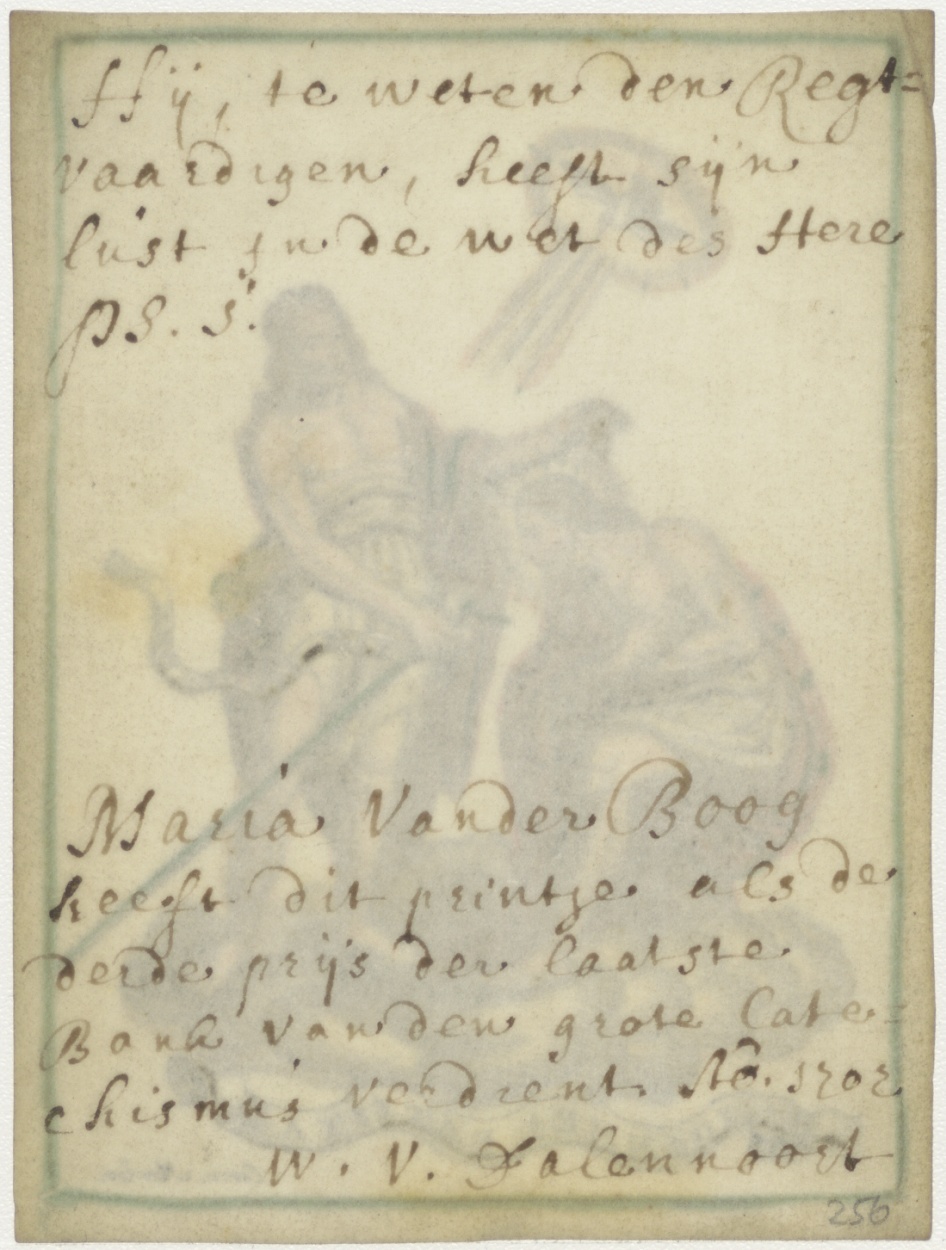 Hij, te weten den Regt=
vaardigen, heeft sijn
lúst in de wet des Here
ps. 1.
Maria Vander Boog
heeft dit printje als de
derde prijs der laatste
Bank van den grote Cate=
chismús verdient. Aº. 1702
W. V. Dalennoort
256